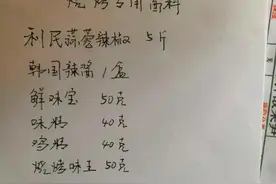 烧烤专用酱料
利民蒜蓉辣椒 5斤
韩国辣酱 1盒
鲜味宝 50克
味精 40克
鸡精 40克
烧烤味王 50克